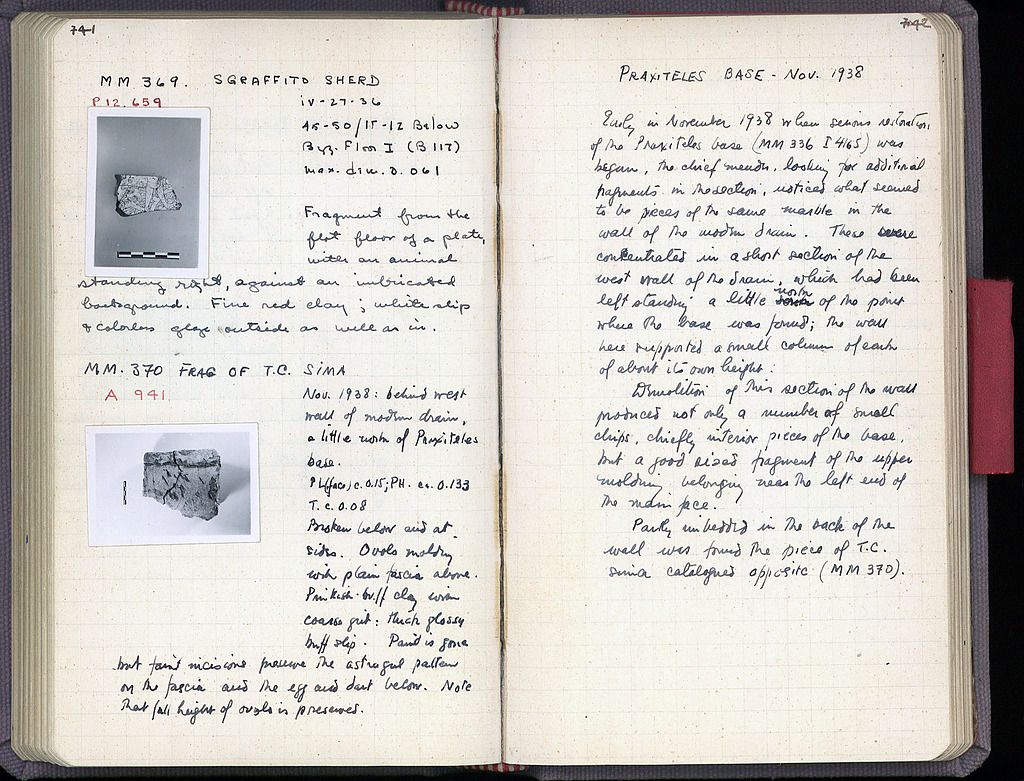 741
MM 369. SGRAFFITO SHERD
P 12,659
iv-27-36
45-50/15-12 Below
Byz. Floor I (B 117)
max. dim. 0.061
Fragment from the
flat floor of a plate,
with an animal
standing right, against an imbricated
background. Fine red clay; white slip
& colorless glaze outside as well as in.
MM. 370 FRAG OF T.C. SIMA
A 941
Nov. 1938: behind west
wall of modern drain,
a little north of Praxiteles
base.
PL (face) c. 0.15; PH. ca. 0.133
T. c. 0.08
Broken below and at
sides. Ovolo molding
with plain fascia above.
Pinkish-buff clay with
coarse grit: thick glossy
buff slip. Paint is gone
but faint incisions preserve the astragal pattern
on the fascia and the egg and dart below. Note
that full height of ovolo is preserved.
742
PRAXITELES BASE - Nov. 1938
Early in November 1938 when serious restoration
of the Praxiteles base (MM 336 I 4165) was
begun, the chief mender, looking for additional
fragments in the section, noticed what seemed
to be pieces of the same marble in the
wall of the modern drain. These were
concentrated in a short section of the
west wall of the drain, which had been
left standing a little north of the point
where the base was found; the wall
here supported a small column of earth
of about its own height.
Demolition of this section of the wall
produced not only a number of small
chips, chiefly interior pieces of the base,
but a good sized fragment of the upper
molding belonging near the left end of
the main face.
Partly imbedded in the back of the
wall was found the piece of T.C.
sima catalogued opposite (MM 370).